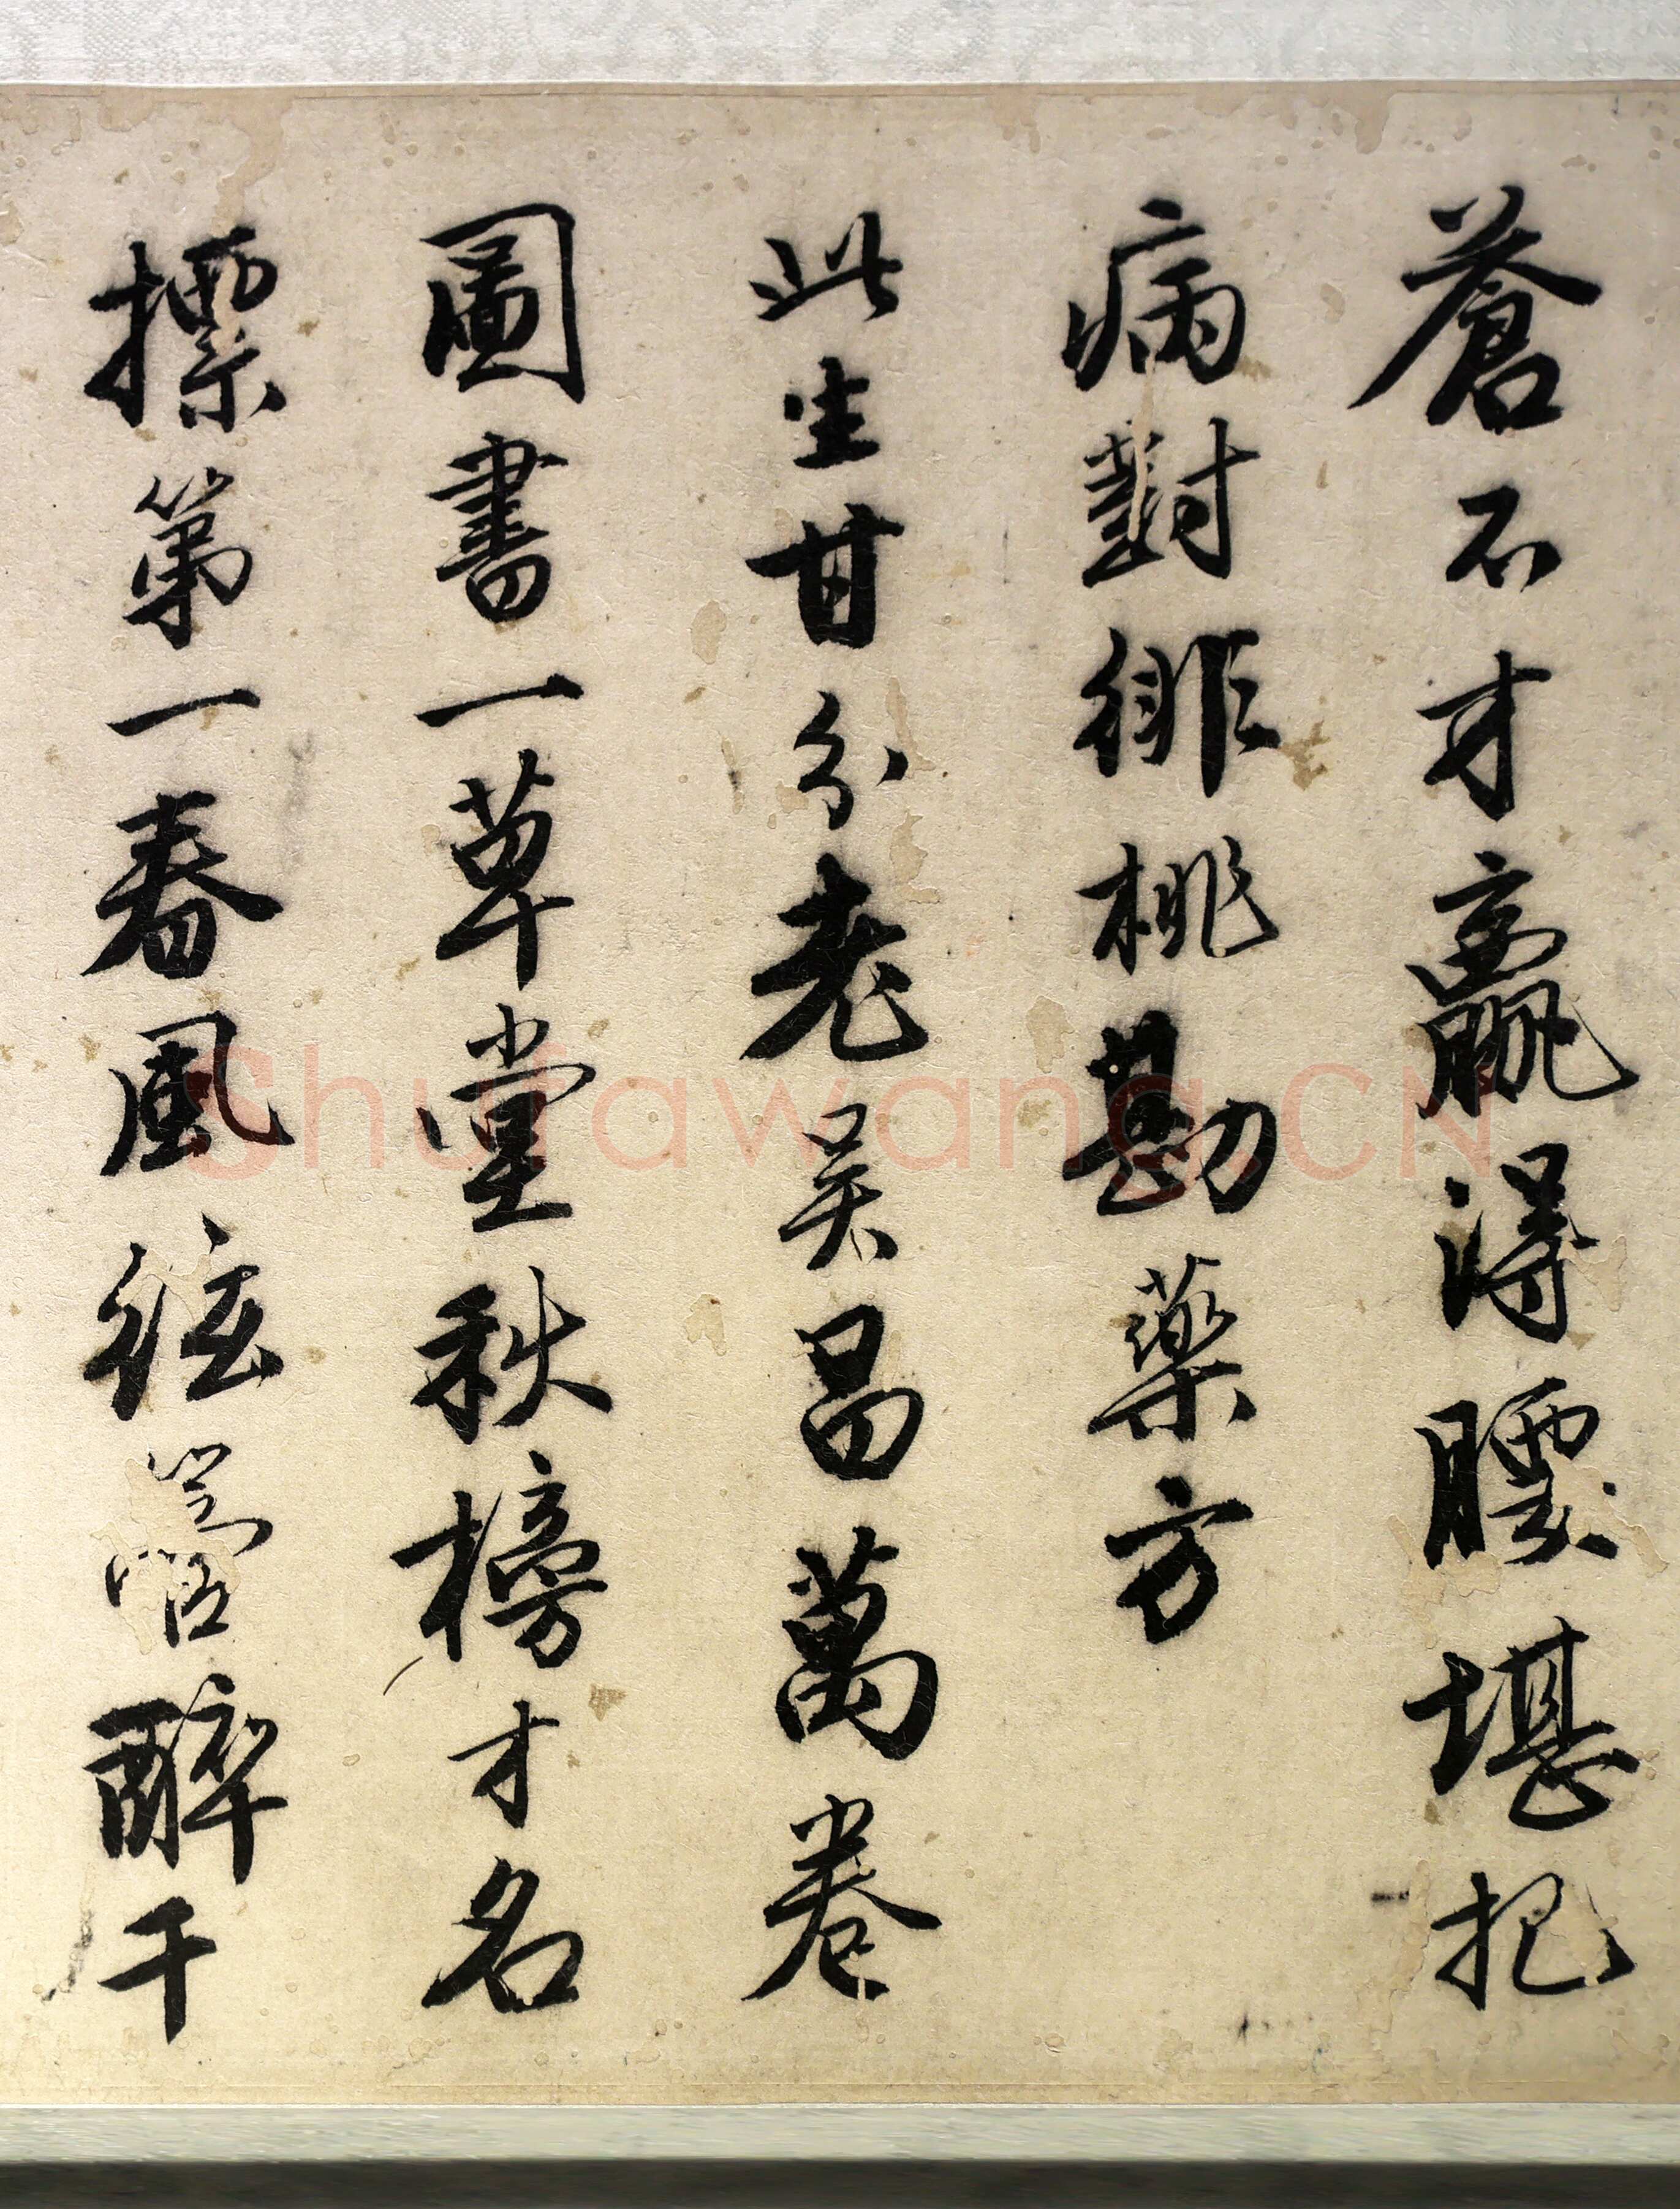 蒼不才贏得腰堪把
病對緋桃勘藥方
此生甘分老吳昌萬卷
圖書一草堂秋榜才名
摽第一春風絃管醉千
Shufawang.CN